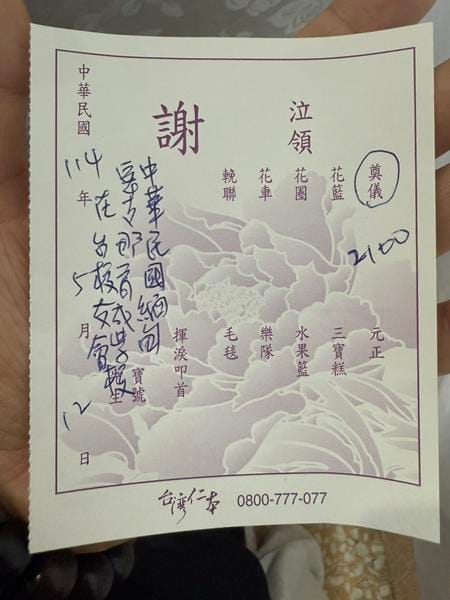 泣領
奠儀 2100 元正
花籃 三寶糕
花圈 水果籃
花車 樂隊
輓聯 毛毯
謝
揮淚叩首
中華民國緬甸
密支那育成學校
在台校友會
寶號
中華民國 114 年 5 月 12 日
台灣仁本 0800-777-077